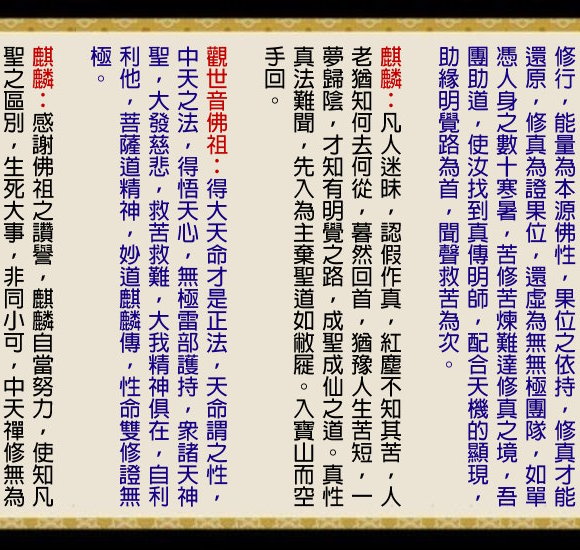 修行，能量為本源佛性，果位之依持，修真才能
還原，修真為證果位，還虛為無無極團隊，如單
憑人身之數十寒暑，苦修苦煉難達修真之境，吾
團助道，使汝找到真傳明師，配合天機的顯現，
助緣明覺路為首，聞聲救苦為次。
麒麟：凡人迷昧，認假作真，紅塵不知其苦，人
老猶知何去何從，暮然回首，猶豫人生苦短，一
夢歸陰，才知有明覺之路，成聖成仙之道。真性
真法難聞，先入為主棄聖道如敝屣。入寶山而空
手回。
觀世音佛祖：得大天命才是正法，天命謂之性，
中天之法，得悟天心，無極雷部護持，衆諸天神
聖，大發慈悲，救苦救難，大我精神俱在，自利
利他，菩薩道精神，妙道麒麟傳，性命雙修證無
極。
麒麟：感謝佛祖之讚譽，麒麟自當努力，使知凡
聖之區別，生死大事，非同小可，中天禪修無為